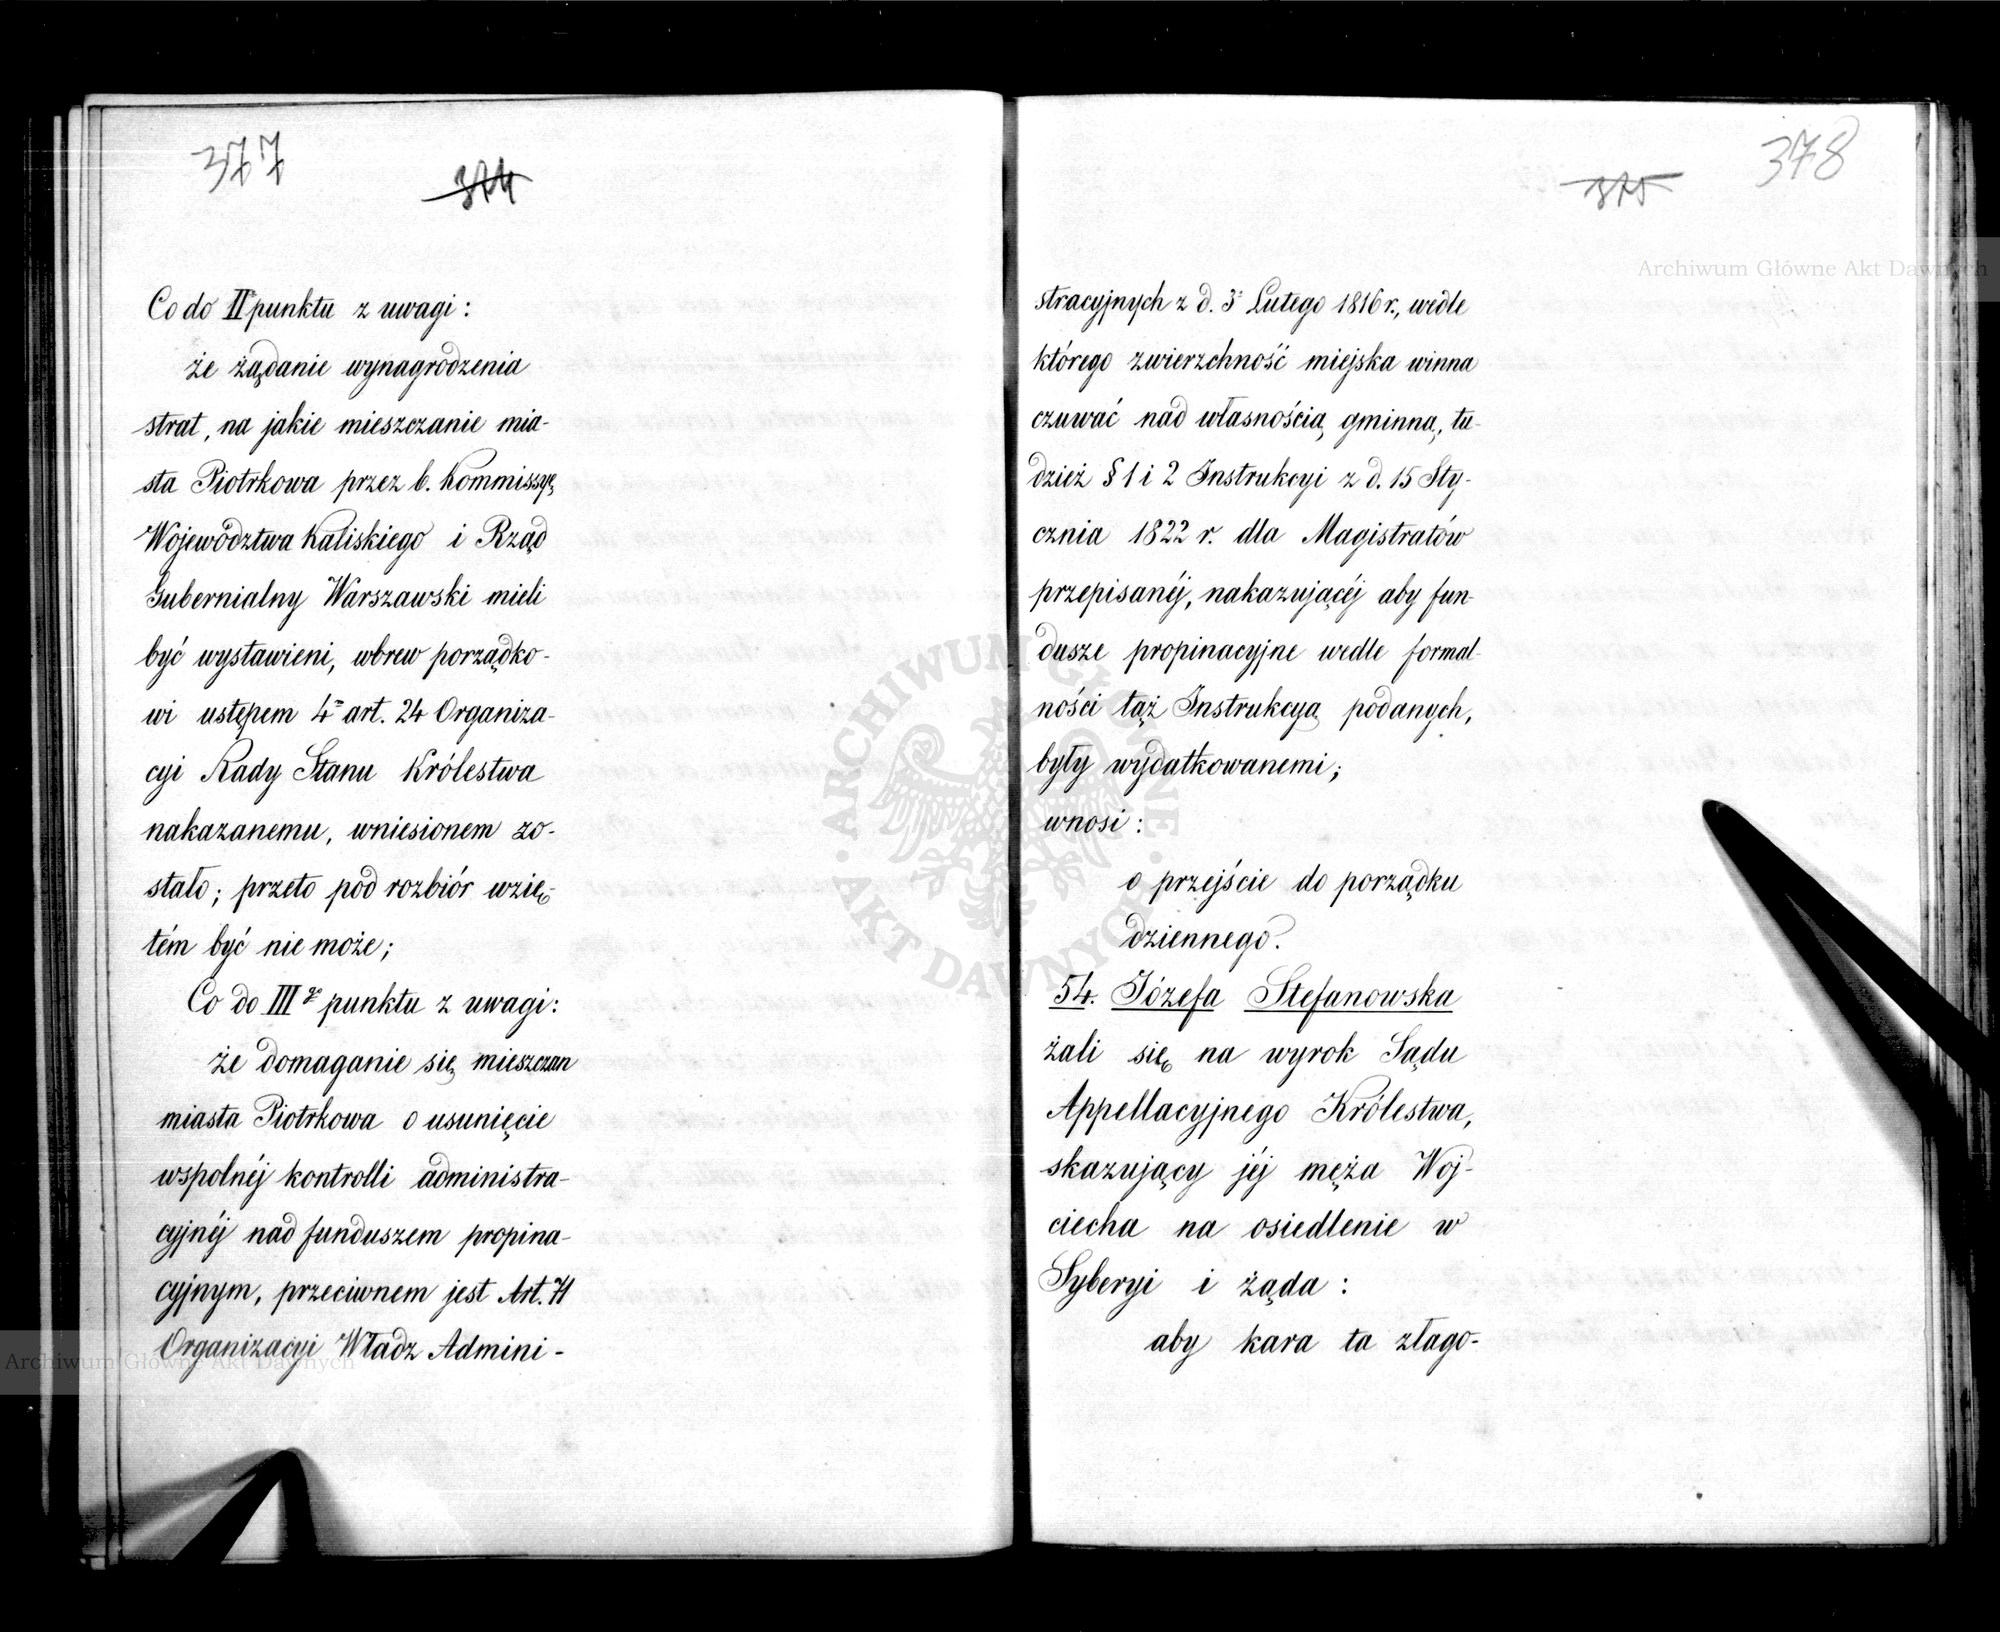 377
374
Co do II punktu z uwagi:
że żądanie wynagrodzenia
strat, na jakie mieszczanie mia-
sta Piotrkowa przez b. Kommissyę
Województwa Kaliskiego i Rząd
Gubernialny Warszawski mieli
być wystawieni, wbrew porządko-
wi ustępem 4m art. 24 Organiza-
cyi Rady Stanu Królestwa
nakazanemu, wniesionem zo-
stało; przeto pod rozbiór wzię-
tém być nie może;
Co do IIIgo punktu z uwagi:
że domaganie się mieszczan
miasta Piotrkowa o usunięcie
wspolnéj kontrolli administra-
cyjnéj nad funduszem propina-
cyjnym, przeciwnem jest Art. 71
Organizacyi Władz Admini-
378
375
stracyjnych z d. 3 Lutego 1816 r., wedle
którego zwierzchność miejska winna
czuwać nad własnością gminną, tu-
dzież § 1 i 2 Instrukcyi z d. 15 Sty-
cznia 1822 r. dla Magistratów
przepisanéj, nakazującéj aby fun-
dusze propinacyjne wedle formal-
ności tąż Instrukcyą podanych,
były wydatkowanemi;
wnosi:
o przejście do porządku
dziennego.
54. Józefa Stefanowska
żali się na wyrok Sądu
Appellacyjnego Królestwa,
skazujący jéj męża Woj-
ciecha na osiedlenie w
Syberyi i żąda:
aby kara ta złago-
Archiwum Główne Akt Dawnych
ARCHIWUM GŁÓWNE AKT DAWNYCH
Archiwum Główne Akt Dawnych